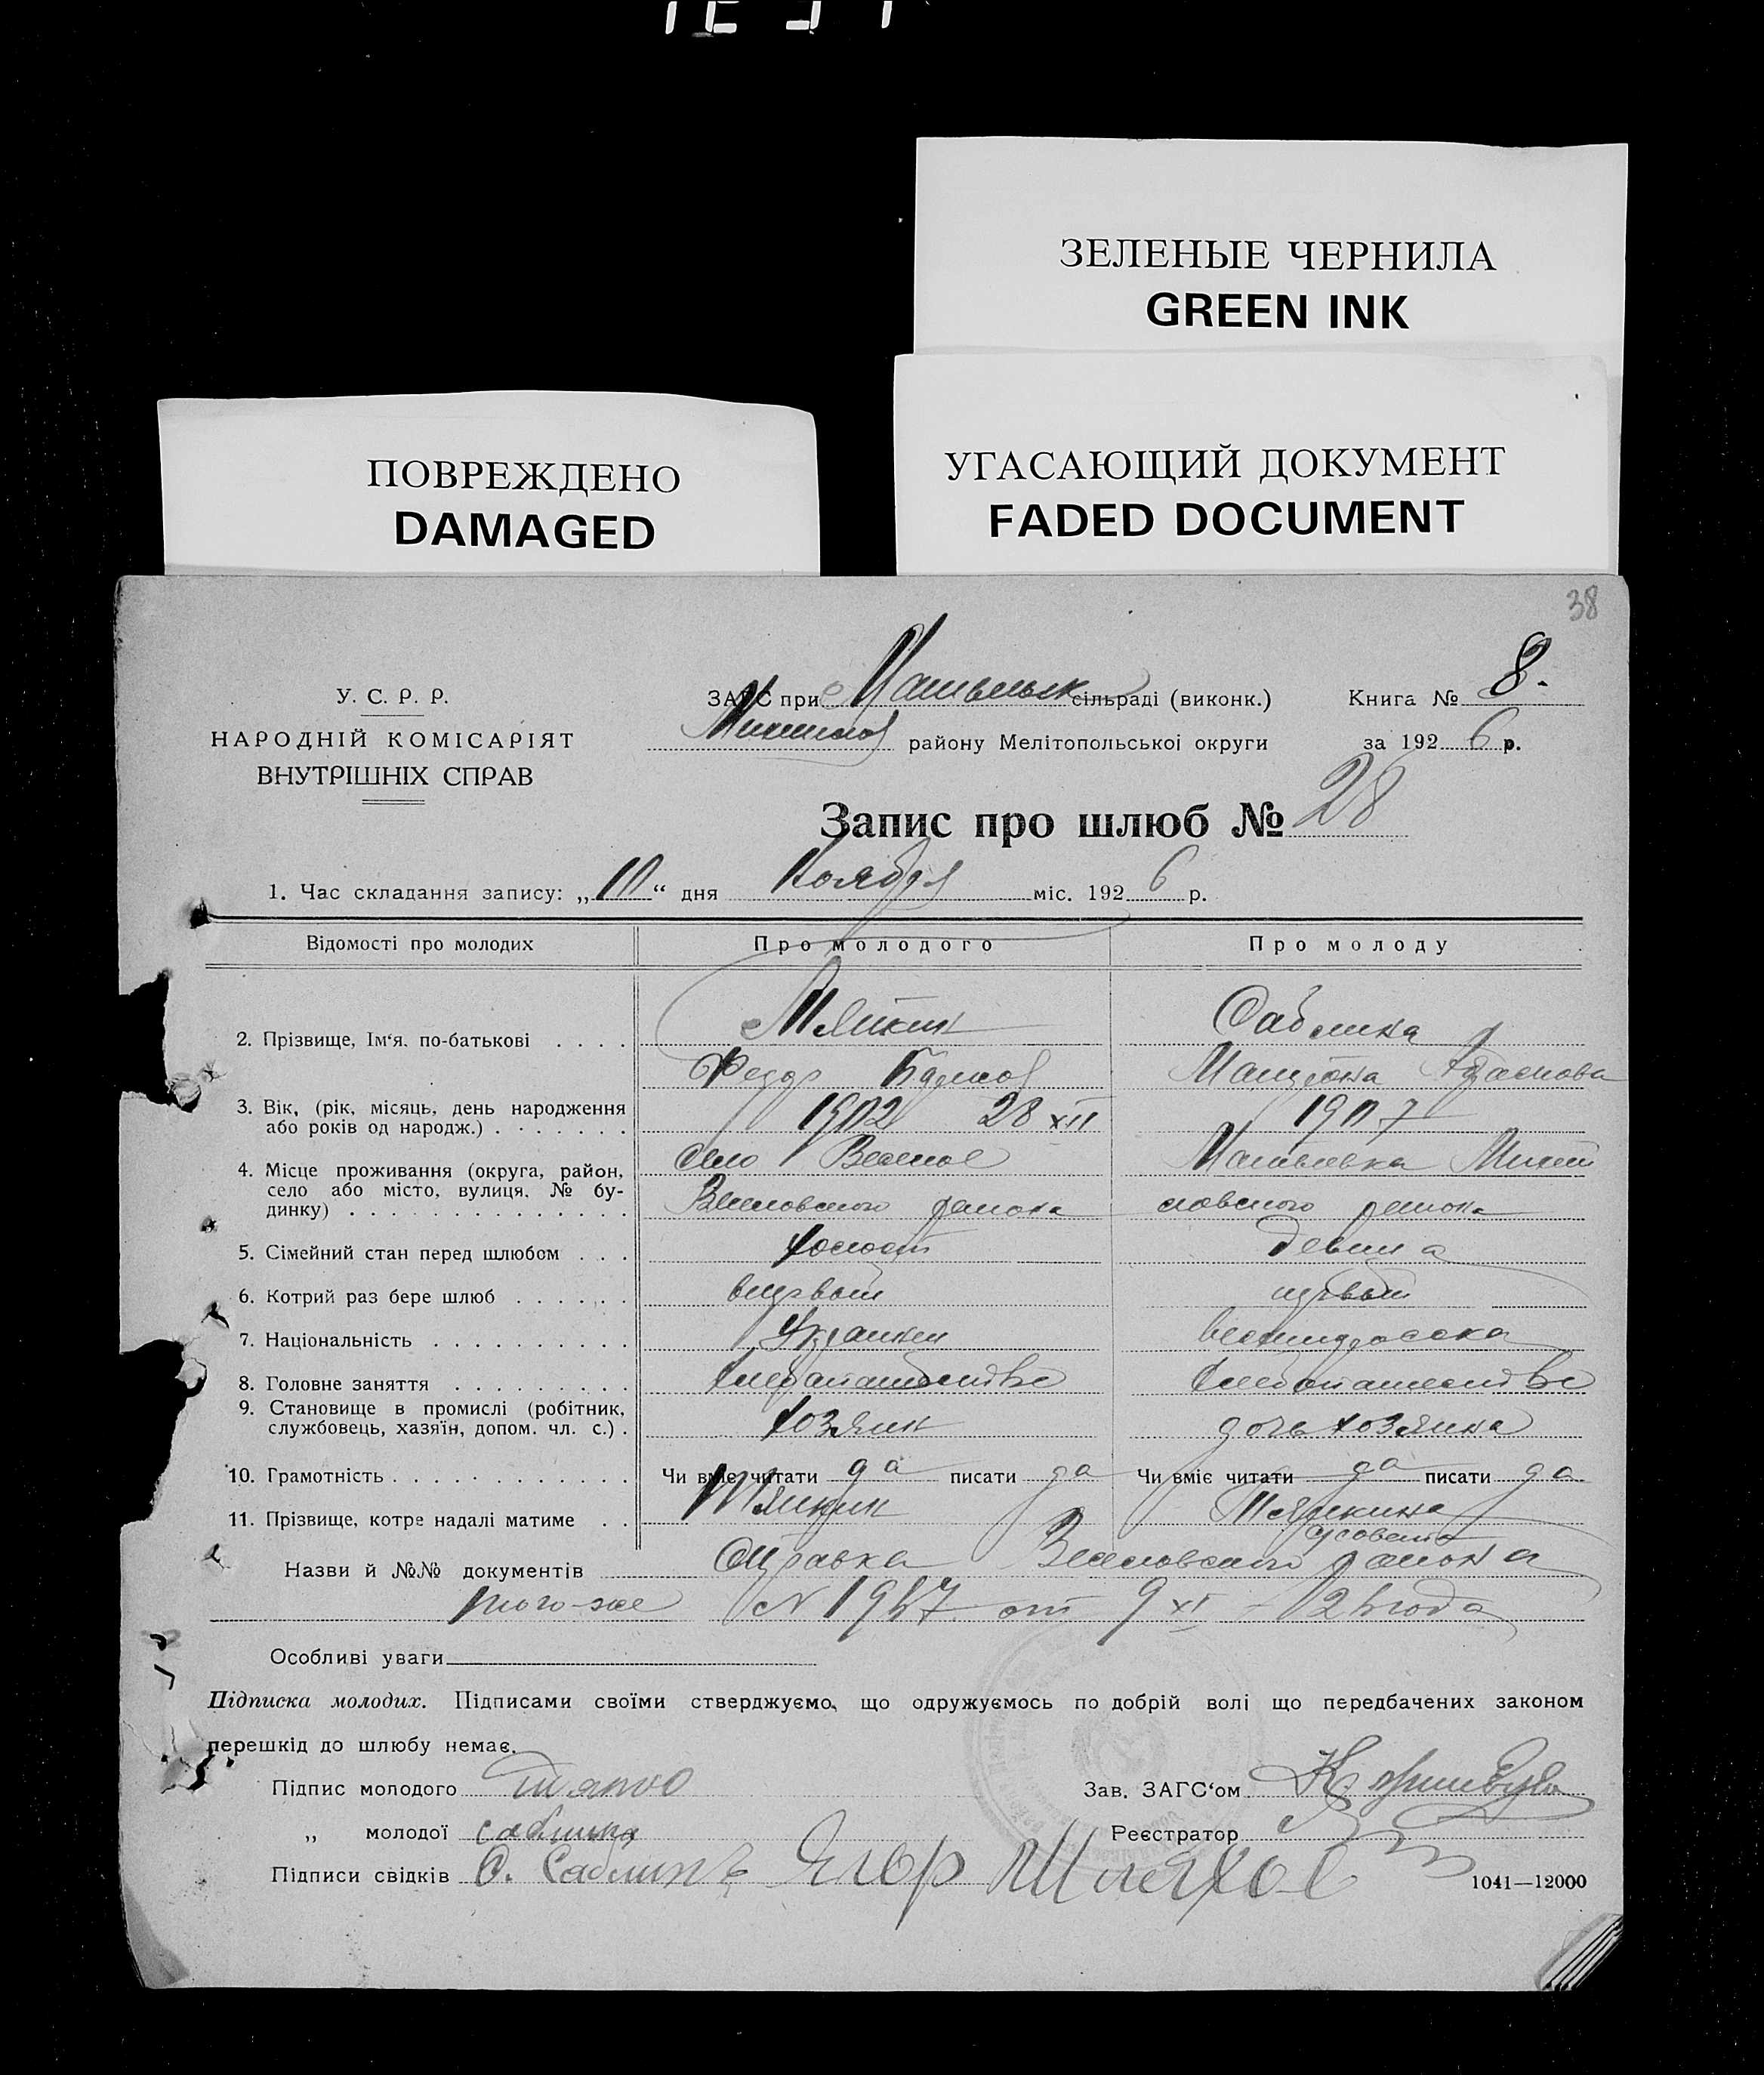 ЗЕЛЕНЫЕ ЧЕРНИЛА
GREEN INK
ПОВРЕЖДЕНО
DAMAGED
УГАСАЮЩИЙ ДОКУМЕНТ
FADED DOCUMENT
38
У. С. Р. Р.
НАРОДНІЙ КОМІСАРІЯТ
ВНУТРІШНІХ СПРАВ
ЗАГС при сільраді (виконк.) Книга № 8.
району Мелітопольської округи за 1926 р.
Запис про шлюб № 28
1. Час складання запису: „10“ дня Ноября міс. 1926 р.
Відомості про молодих Про молодого Про молоду
2. Прізвище, Ім‘я, по-батькові . . . . Саблина
Федор
3. Вік, (рік, місяць, день народження або років од народж.) . . . . . . . 1902 28 XII 1907
4. Місце проживання (округа, район, село або місто, вулиця, № будинку) . . . . . . . . . . . . . . село Веселое
Веселовского района ловского района
5. Сімейний стан перед шлюбом . . . холост девица
6. Котрий раз бере шлюб . . . . . . первый
7. Національність . . . . . . . . . . Украинец великоросска
8. Головне заняття . . . . . . . . .
9. Становище в промислі (робітник, службовець, хазяїн, допом. чл. с.) . хозяин дочь хозяина
10. Грамотність . . . . . . . . . . . . Чи вміє читати да писати да Чи вміє читати да писати да
11. Прізвище, котре надалі матиме . .
Назви й №№ документів Справка Веселовского района
того-же N от 9 XI - 26 года
Особливі уваги
Підписка молодих. Підписами своїми стверджуємо, що одружуємось по добрій волі що передбачених законом
перешкід до шлюбу немає.
Підпис молодого Зав. ЗАГС‘ом
„ молодої саблина Реєстратор
Підписи свідків Саблин Ягор Шляхов 1041—12000